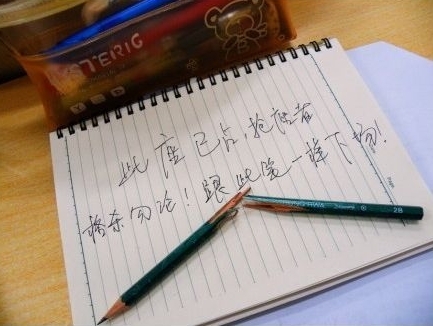 STERIG
此座已占，抢座者
格杀勿论！跟此笔一样下场！
2B